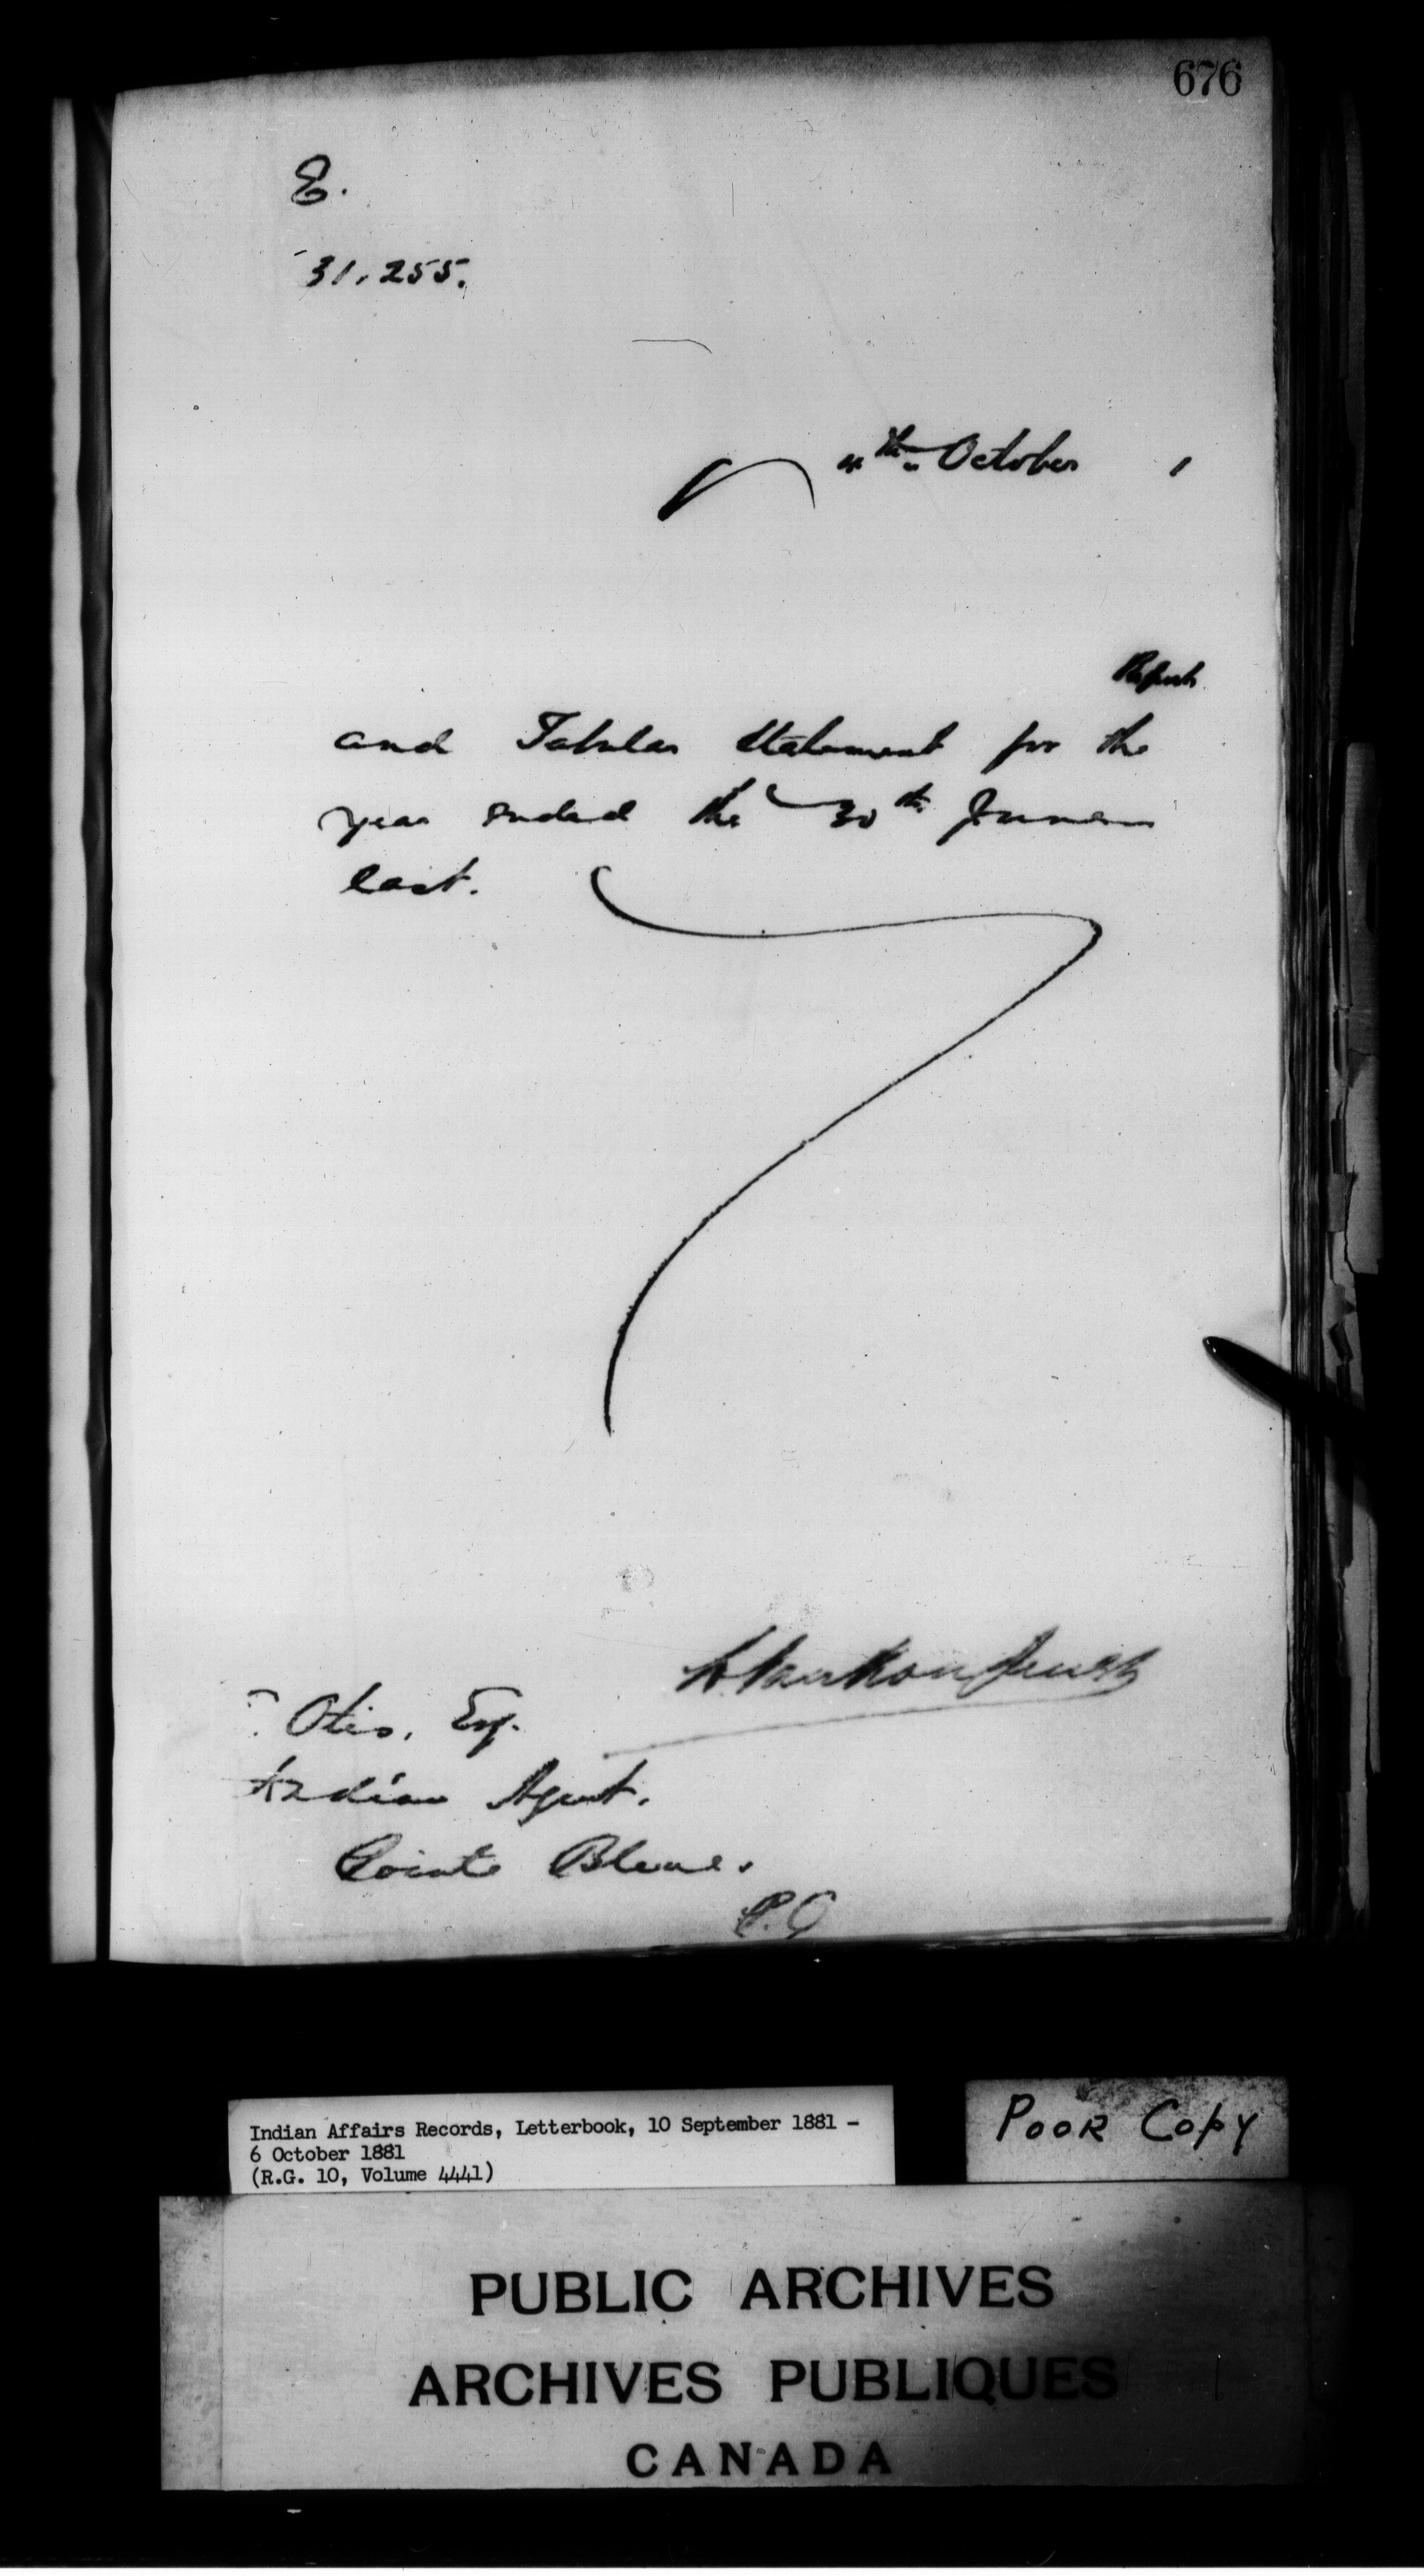 676
E.
31,255.
4th October 1
Report
and Tabular Statement for the
year ended the 30th June
last.
L. VanKoughnet
? Otis, Esq.
Indian Agent.
Pointe Bleue.
P.Q
Indian Affairs Records, Letterbook, 10 September 1881 -
6 October 1881
(R.G. 10, Volume 4441)
POOR COPY
PUBLIC ARCHIVES
ARCHIVES PUBLIQUES
CANADA